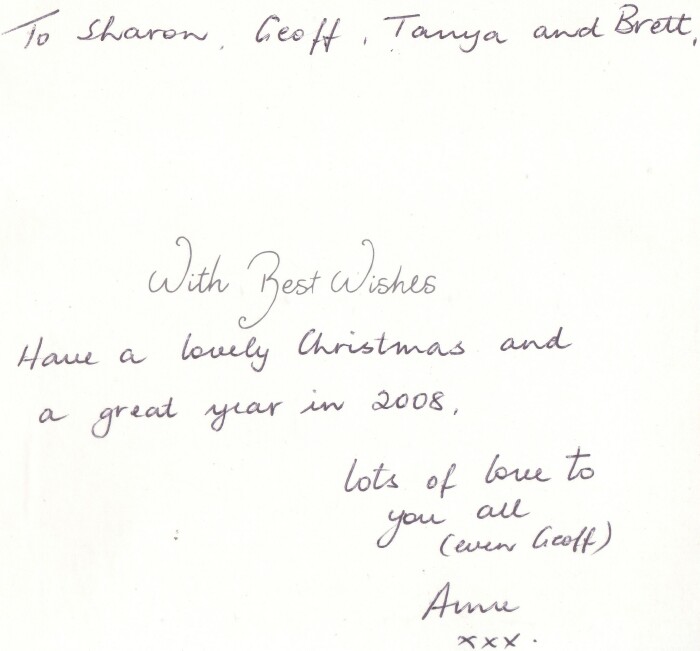 To Sharon, Geoff, Tanya and Brett,
With Best Wishes
Have a lovely Christmas and
a great year in 2008,
lots of love to
you all
(even Geoff)
Anne
xxx.